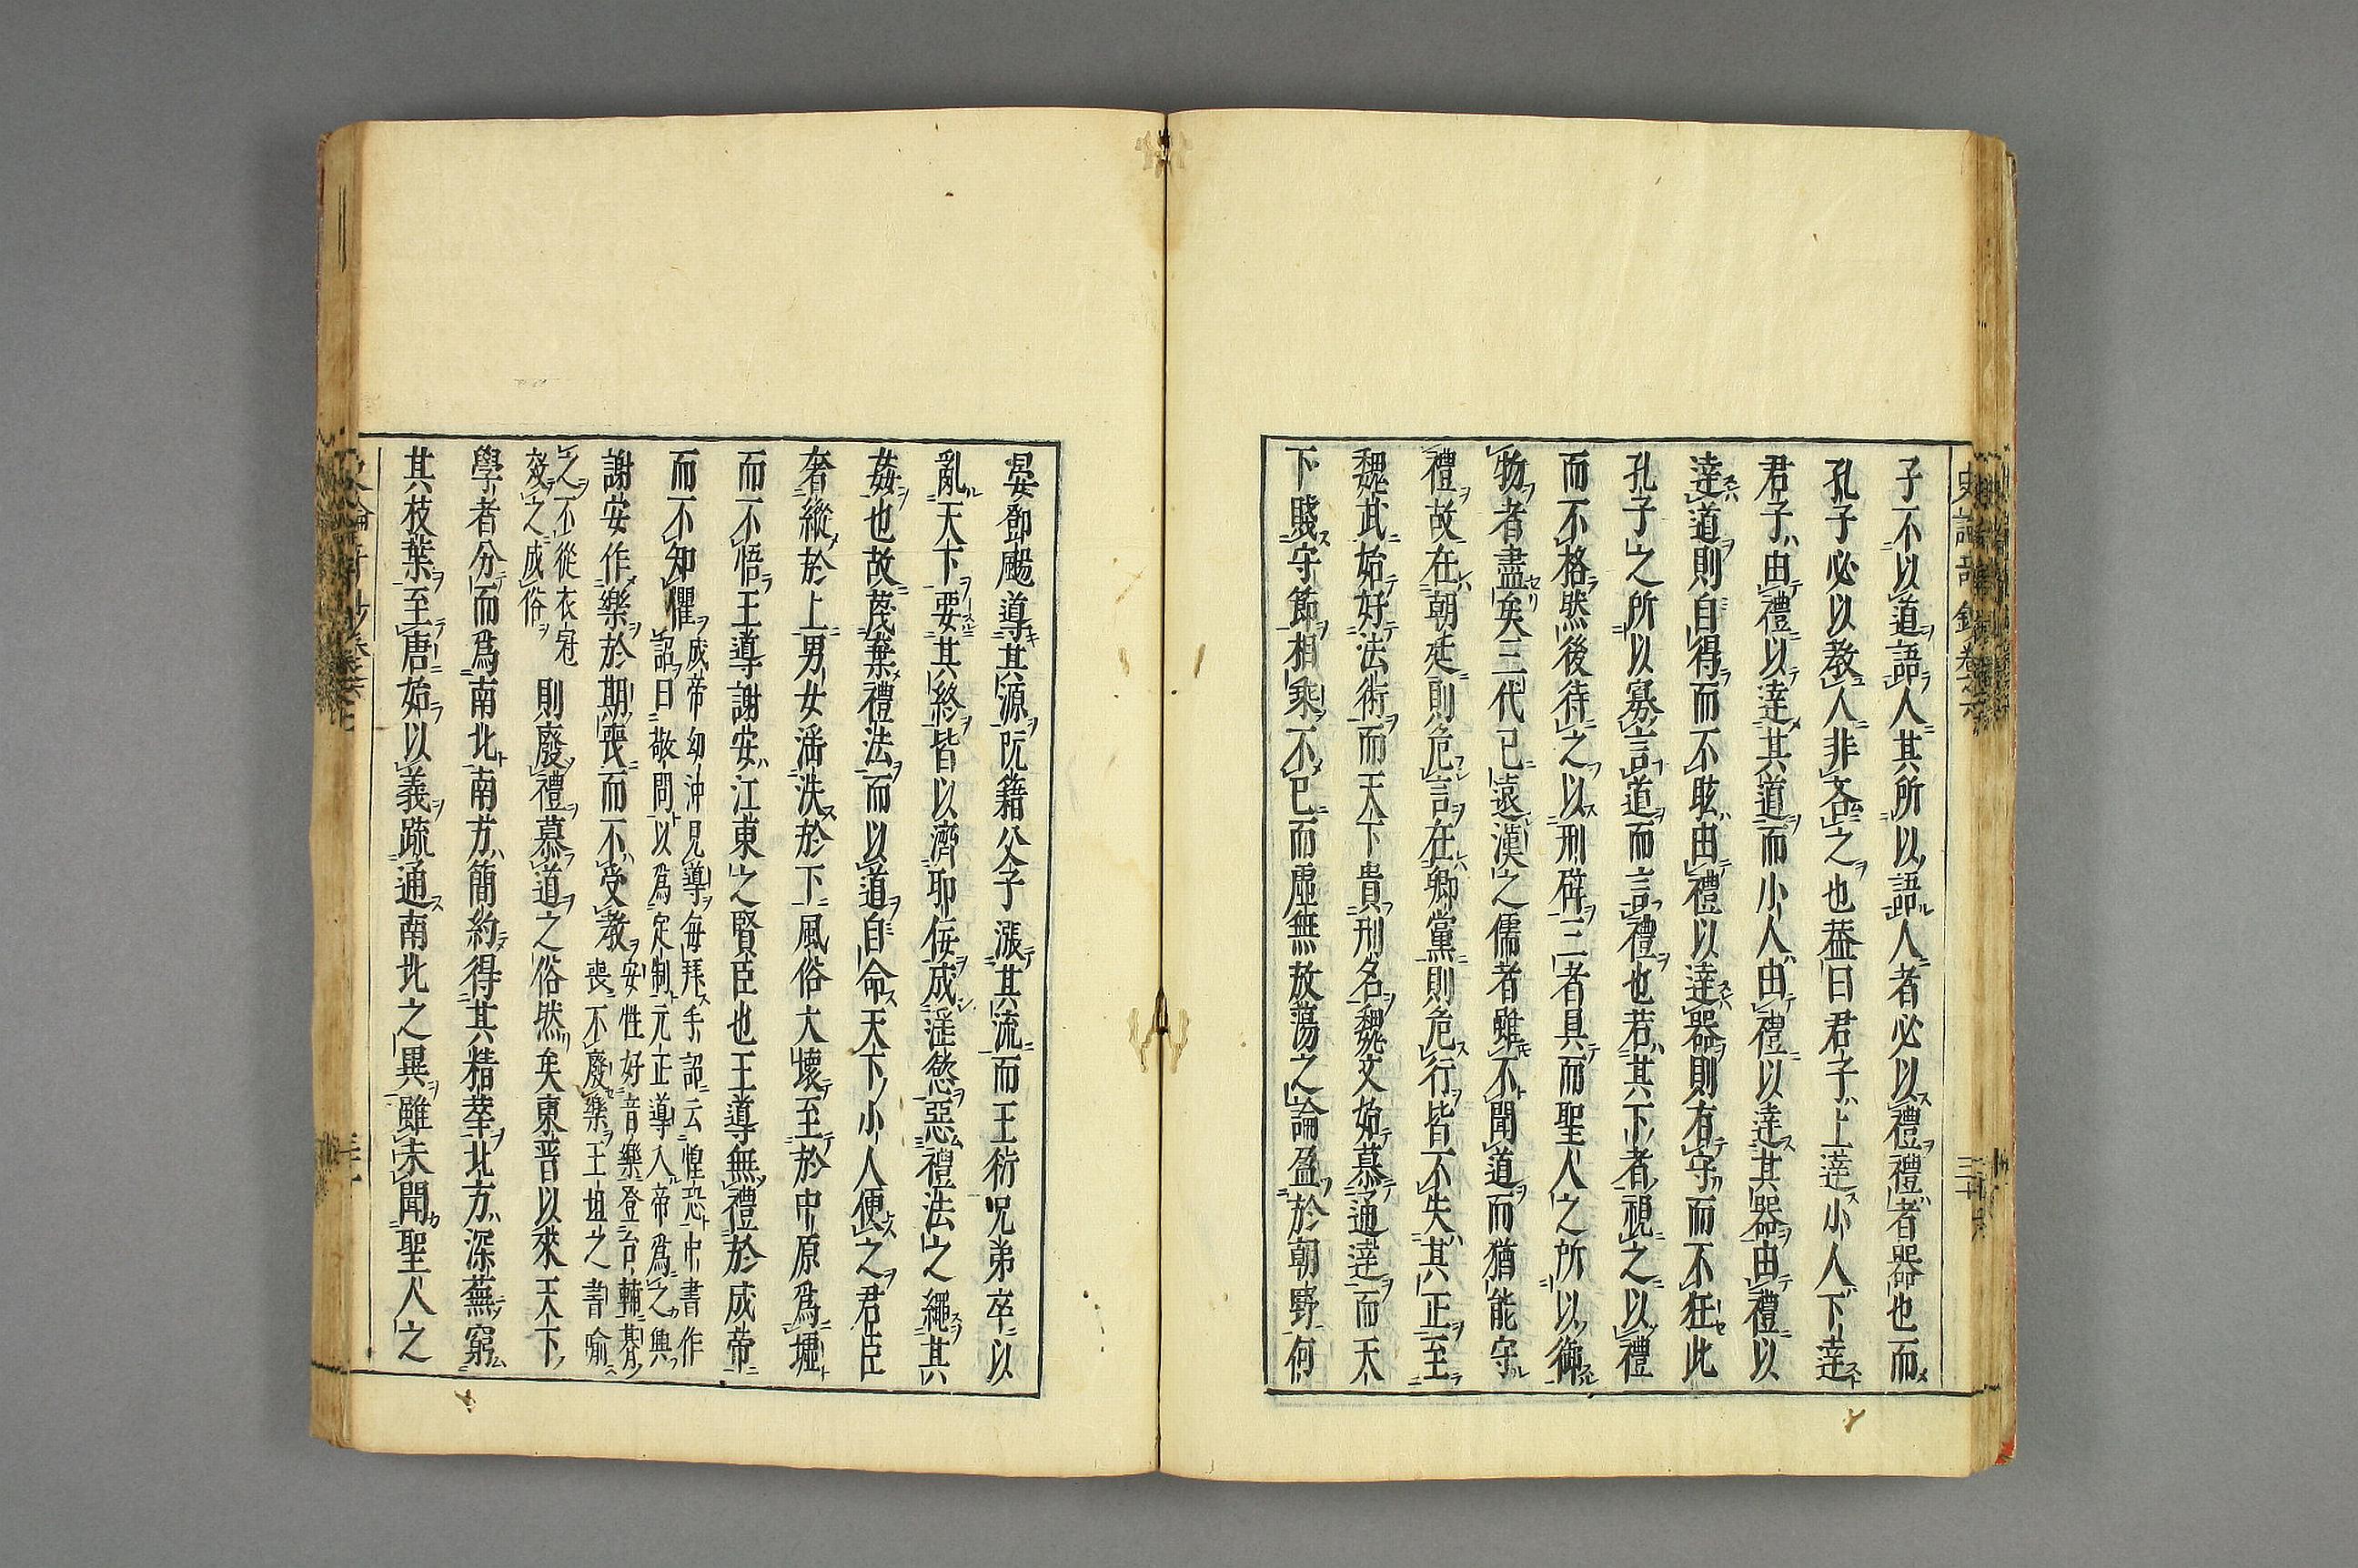 子不以道語人其所以語人者必以禮禮者器也而
孔子必以教人非吝之也葢曰君子上達小人下達
君子由禮以達其道而小人由禮以達其器由禮以
達道則自得而不眩由禮以達器則有守而不狂此
孔子之所以寡言道而言禮也若其下者視之以禮
而不格然後待之以刑辟三者具而聖人之所以御
物者盡矣三代已遠漢之儒者雖不聞道而猶能守
禮故在朝廷則危言在鄉黨則危行皆不失其正至
魏武始好法術而天下貴刑名魏文始慕通達而天
下賤守節相乘不已而虛無放蕩之論盈於朝野何
晏鄧颺導其源阮籍父子漲其流而王衍兄弟卒以
亂天下要其終皆以濟邪佞成淫慾惡禮法之繩其
姦也故蔑棄禮法而以道自命天下小人便之君臣
奢縱於上男女淫泆於下風俗大壞至於中原為墟
而不悟王導謝安江東之賢臣也王導無禮於成帝
而不知懼
成帝幼沖見導每拜手詔云惶恐中書作
詔曰敬問以為定制元正導入帝為之興
謝安作樂於期喪而不受教
安性好音樂登台輔朞
喪不廢樂王坦之書喻
之不從衣冠
效之成俗
則廢禮慕道之俗然矣東晉以來天下
學者分而為南北南方簡約得其精華北方深蕪窮
其枝葉至唐始以義疏通南北之異雖未聞聖人之